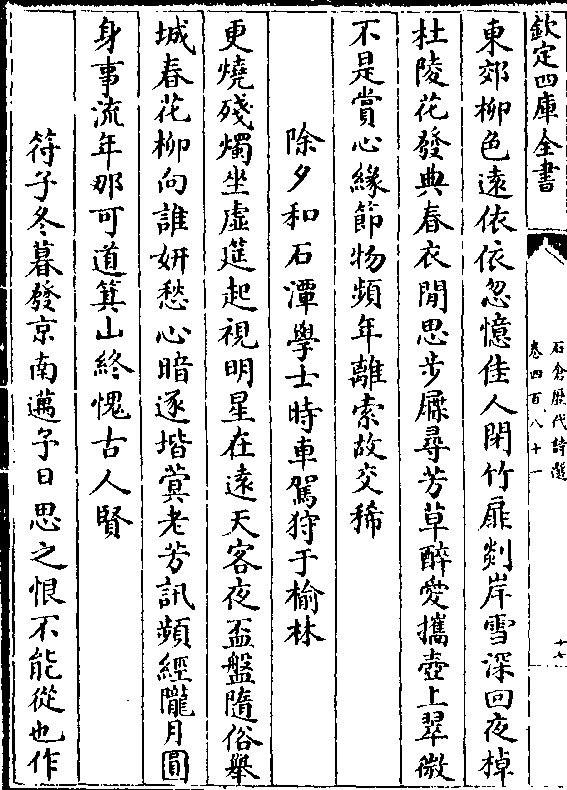 欽定四庫全書
石倉歷代詩選
卷四百八十一
十七
東郊柳色遠依依忽憶佳人閉竹扉剡岸雪深回夜棹
杜陵花發典春衣閒思步屧尋芳草醉愛攜壺上翠微
不是賞心緣節物頻年離索故交稀
除夕和石潭學士時車駕狩于榆林
更燒殘燭坐虛筵起視明星在遠天客夜盃盤隨俗舉
城春花柳向誰妍愁心暗逐堦蓂老芳訊頻經隴月圓
身事流年那可道箕山終愧古人賢
符子冬暮發京南邁予日思之恨不能從也作